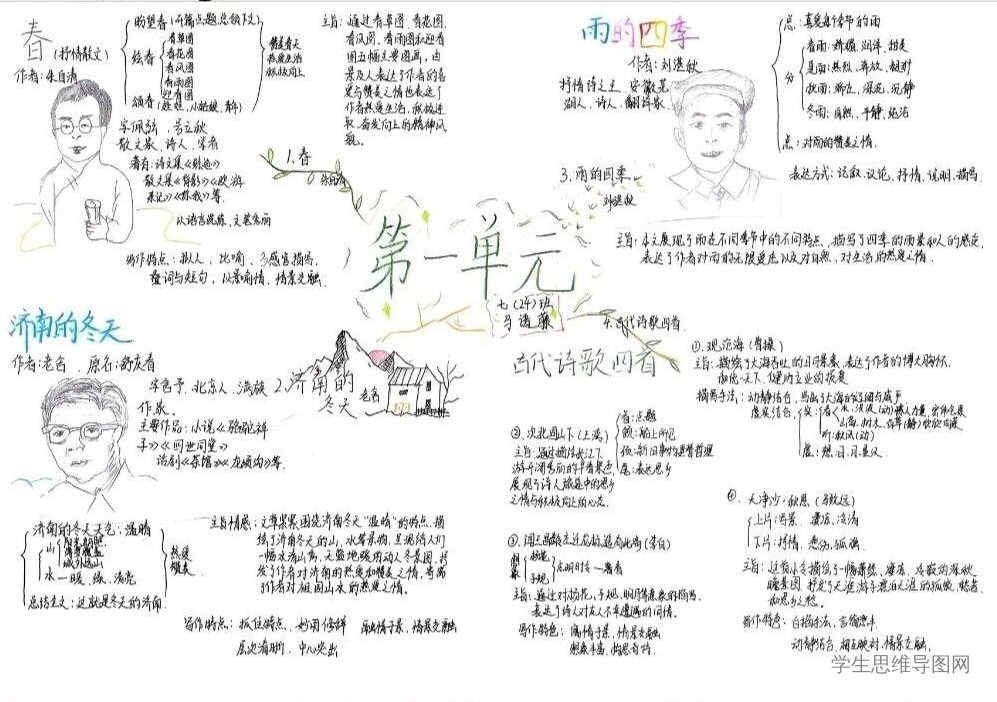 春
(抒情散文)
作者:朱自清
盼望春(开篇点题,总领下文)
绘春
春草图
春花图
春风图
春雨图
迎春图
颂春(娃娃、小姑娘、青年)
赞美春天
热爱生活
积极向上
主旨:通过春草图、春花图、
春风图、春雨图和迎春
图五幅主要图画,由
景及人表达了作者的喜
爱与赞美之情也表达了
作者热爱生活、积极进
取、奋发向上的精神风
貌。
字佩弦、号立秋
散文家、诗人、学者
著有:诗文集《踪迹》
散文集《背影》《欧游
杂记》《你我》等.
从语言洗练、文笔秀丽
写作特点:拟人、比喻、多感官描写、
叠词与短句,以景喻情、情景交融.
1.春
朱自清
第一单元
七(24)班
雨的四季
作者:刘湛秋
抒情诗之王 安徽芜
湖人、诗人、翻译家.
总:喜爱每个季节的雨
分
春雨:娇媚、润泽、甜美
夏雨:热烈、奔放、粗犷
秋雨:端庄、深沉、沉静
冬雨:自然、平静、纯洁
总:对雨的赞美之情.
表达方式:记叙、议论、抒情、说明、描写.
3.雨的四季
刘湛秋
主旨:本文展现了雨在不同季节中的不同特点,描写了四季的雨景和人的感受,
表达了作者对雨的无限爱恋以及对自然、对生活的热爱之情.
济南的冬天
作者:老舍 、原名:舒庆春
字舍予、北京人、满族
作家.
主要作品:小说《骆驼祥
子》《四世同堂》
话剧《茶馆》《龙须沟》等.
2.济南的
冬天
老舍
济南的冬天天气:温晴
山
水—暖、绿、清亮
总结全文:这就是冬天的济南.
热爱
赞美
主旨情感:文章紧紧围绕济南冬天“温晴”的特点,描
绘了济南冬天的山、水等景物,呈现给人们
一幅水清山秀、天蓝地暖的动人冬景图,抒
发了作者对济南的热爱和赞美之情,寄寓
了作者对祖国山水的热爱之情.
写作特点:抓住特点、妙用修辞 、情景交融
层次清晰、中心突出
4.古代诗歌四首.
古代诗歌四首
①.观沧海(曹操)
主旨:描绘了大海吞吐的日月景象,表达了作者的博大胸怀、
统一天下、建功立业的抱负
描写手法:动静结合,写出了大海的辽阔与威严
虚实结合
实
听:秋风(动)
虚:想:日、月、星汉.
②.次北固山下(王湾)
首:点题
颔:船上所见
尾:表达思乡
展现了诗人旅途中的思乡
之情与积极向上的心态.
③.闻王昌龄左迁龙标遥有此寄(李白)
杨花
子规
点明时令—暮春
主旨:通过对杨花、子规、明月等意象的描写,
表达了诗人对友人不幸遭遇的同情.
写作特色:寓情于景、情景交融
想象丰富、构思奇特.
④.天净沙·秋思(马致远)
上片:写景、凄凉、冷清
下片:抒情、悲伤、孤独.
主旨:这首小令描绘了一幅萧瑟、凄凉、冷寂的深秋
晚景图,抒发了天涯游子漂泊天涯的孤独、愁苦
和思乡之愁.
写作特色:白描手法、言简意丰
动静结合、相互映衬、情景交融.
学生思维导图网